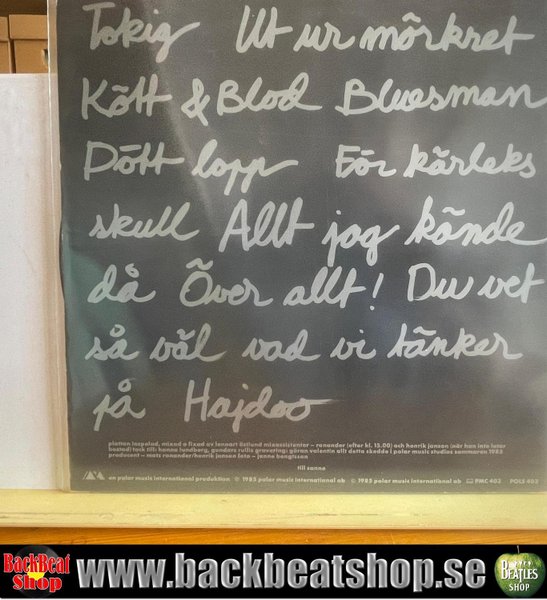 Tokig Ut ur mörkret
Kött & Blod Bluesman
Dött lopp För kärleks
skull Allt jag kände
då Över allt! Du vet
så väl vad vi tänker
på Hajdoo
plattan inspelad, mixad o fixad av lennart östlund mixassistenter – ronander (efter kl. 15.00) och henrik janson (när han inte letar
bostad) tack till: hanne lundberg, gunders rullis gravering: göran valentin allt detta skedde i polar music studios sommaren 1985
producent – mats ronander/henrik janson foto – janne bengtsson
till sanna
en polar music international produktion ℗ 1985 polar music international ab © 1985 polar music international ab PMC 403 POLS 403
BackBeat Shop www.backbeatshop.se BEATLES SHOP